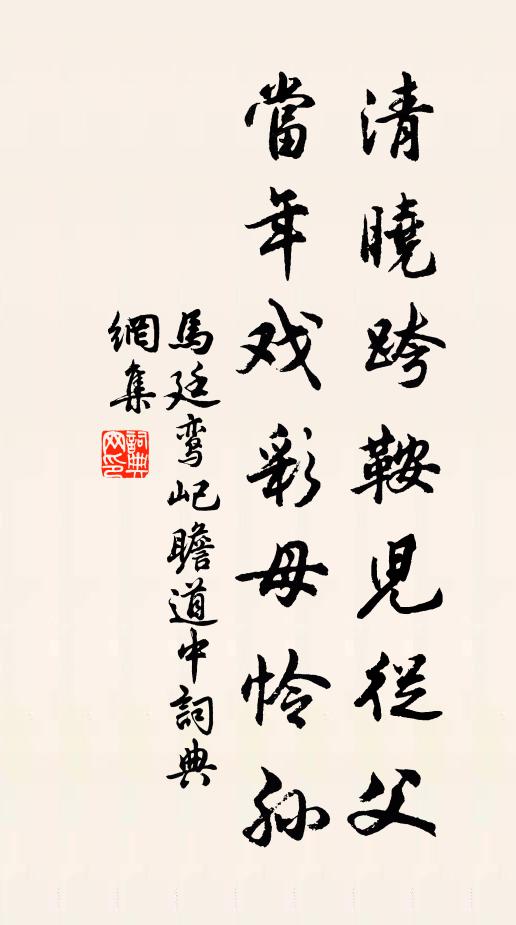 清曉跨鞍児從父
當年戏彩母怜孙
馬廷鸾屺瞻道中詞典
網集
詞典网印